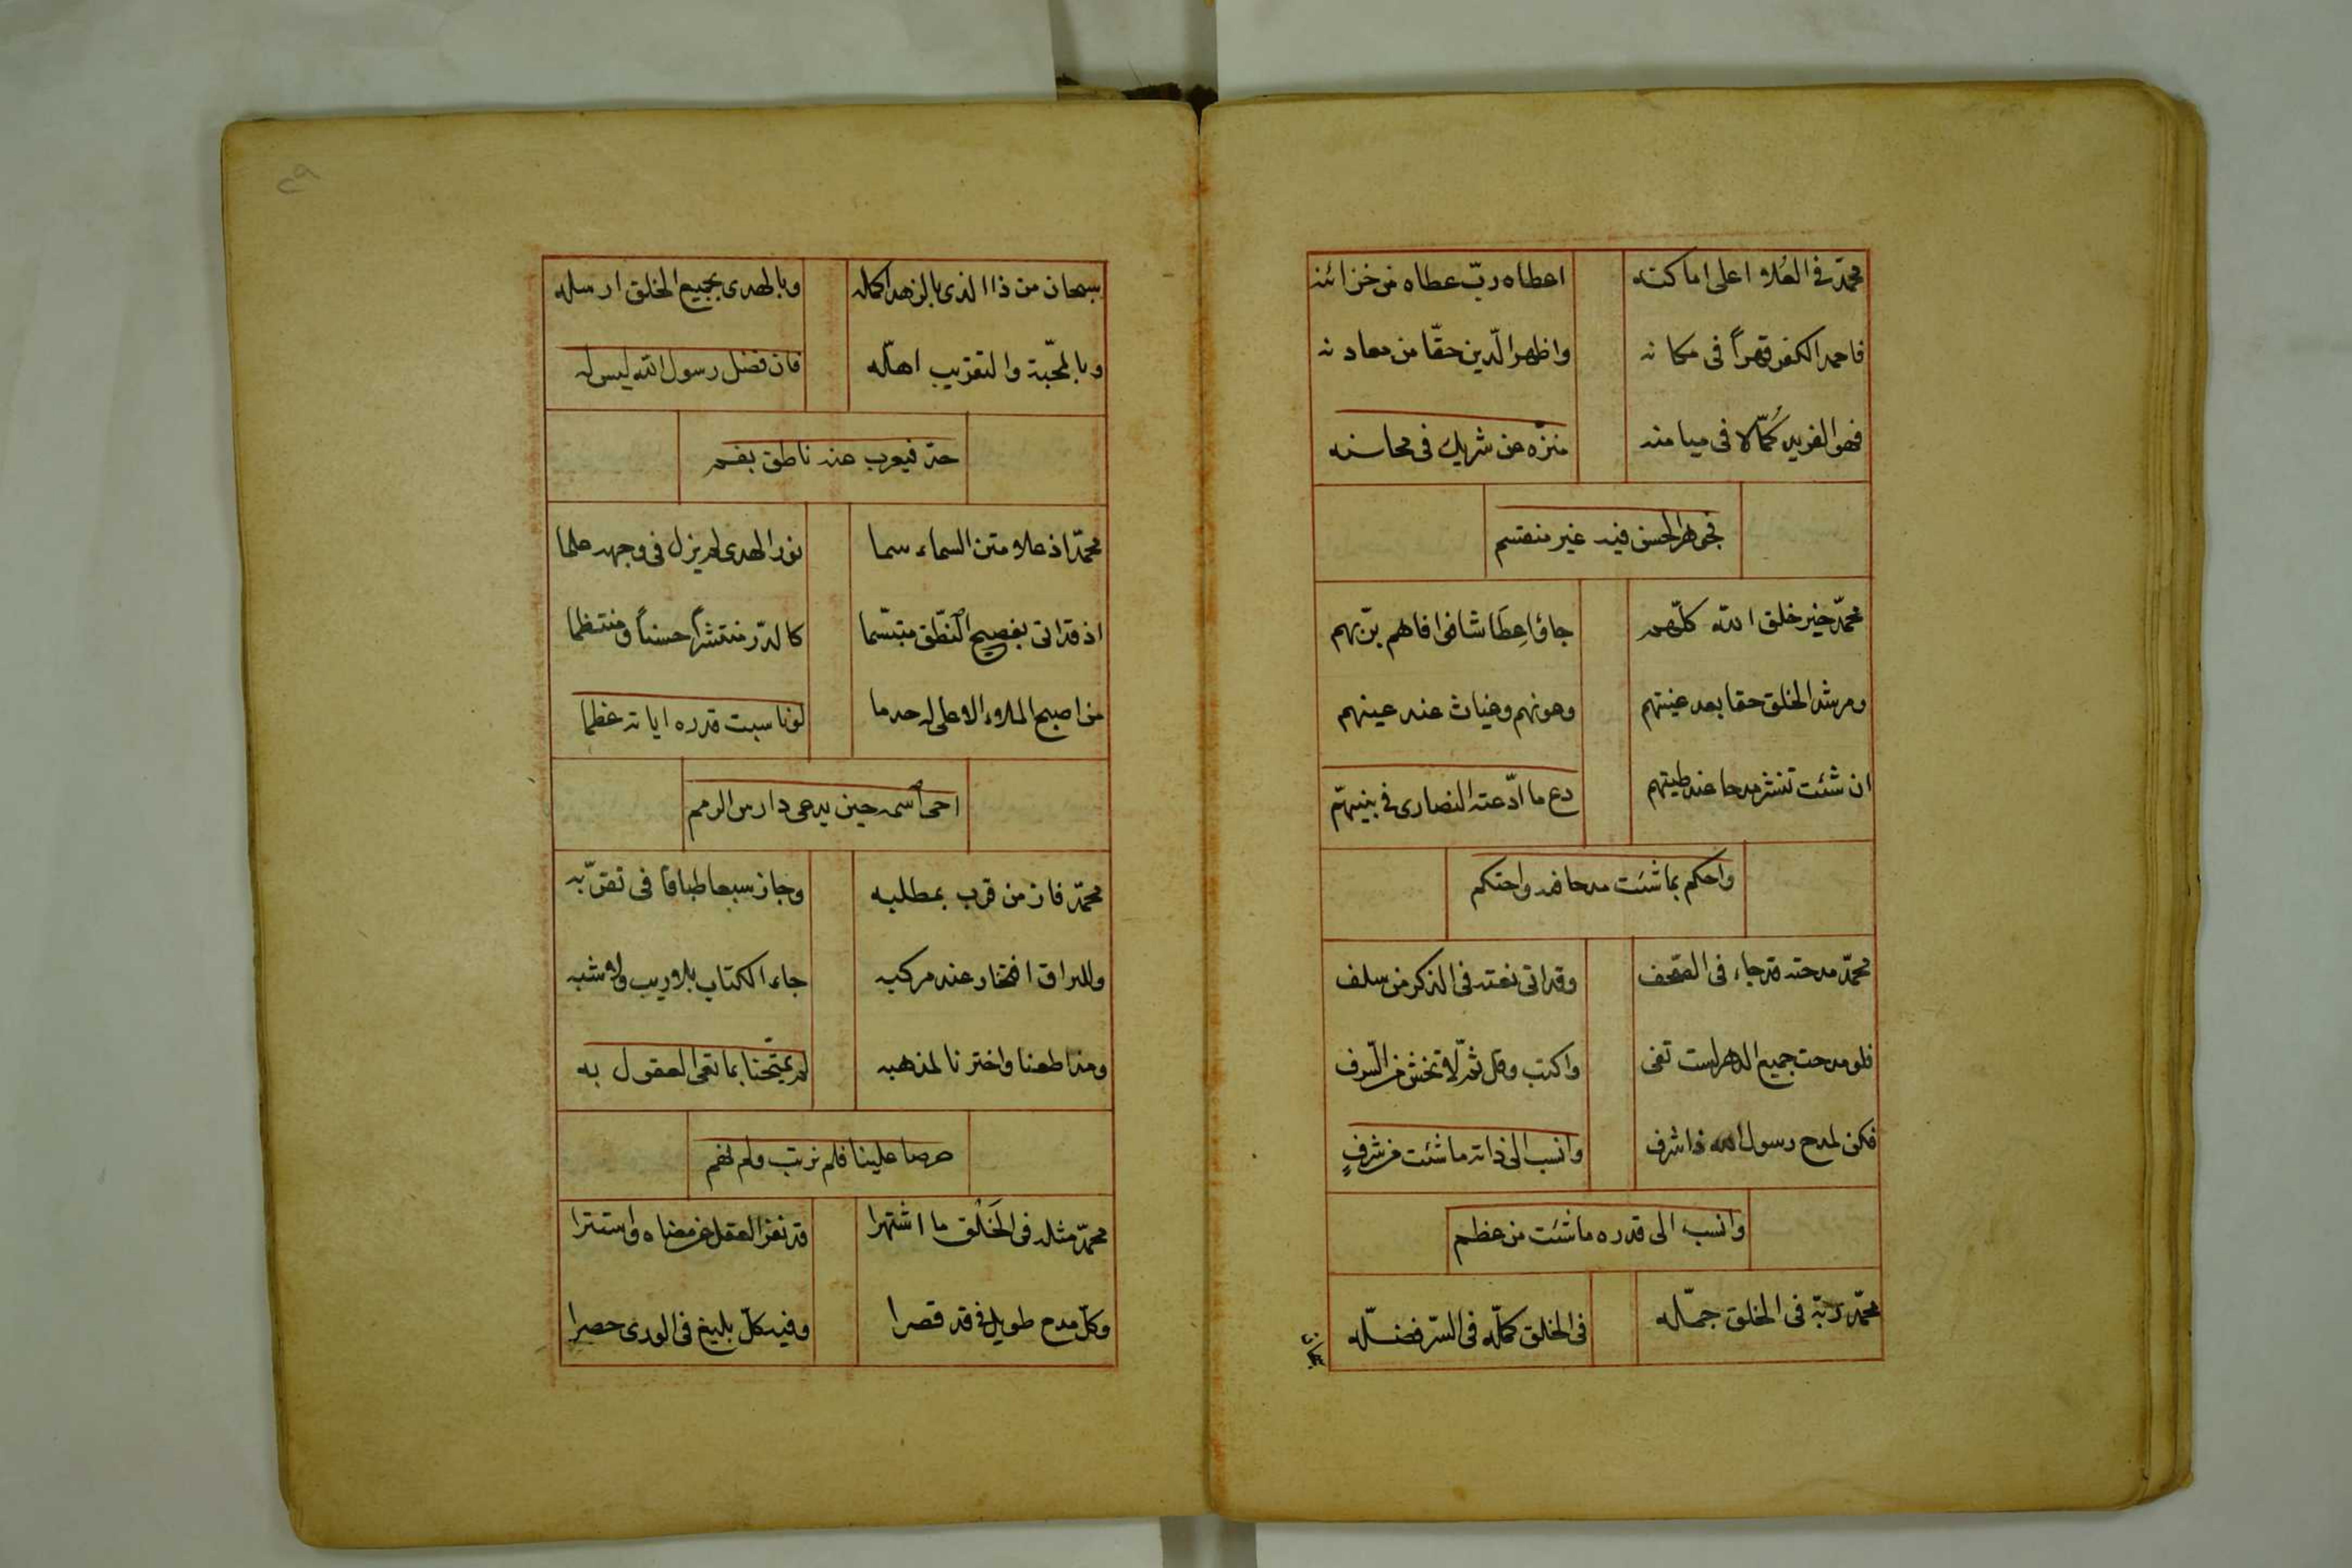 محمّد في العُلا اعلى اماكنه اعطاه ربّ عطاه من خزائنه
فاخمد الكفر قهراً فى مكانه واظهر الدّين حقّا من معادنه
فهو الفريد كُمّالا فى ميامنه منزّه عن شريك فى محاسنه
فجوهر الحسن فيه غير منقسم
محمّد خير خلق الله كلّهم جاؤا عِطَاشا فوافاهم برّيهم
ومرشد الخلق حقا بعد غيّهم وعونهم وغياث عند عينهم
ان شئت تنشر مدحا عند طيّهم دع ما ادّعته النصارى فى نبيهّم
واحكم بما شئت مدحا فيه واحتكم
محمّد مدحته قد جاء فى الصّحف وقد اتى نعته فى الذكر من سلف
فلو مدحت جميع الدهر لست تفى واكتب وقل ثمّ لا تخش من السّرف
فكن لمدح رسول الله ذا شرف وانسب الى ذاته ما شئت من شرفٍ
وانسب الى قدره ما شئت من عظم
محمّد ربّه فى الخلق جمّله فى الخلق كمّله فى السّر فضّله
سبحان
٢٩
سبحان من ذا الذى بالزهد اكمله وبالهدى بجميع الخلق ارسله
وبالمحّبة والتقريب اهّله فان فضل رسول الله ليس له
حدّ فيعرب عنه ناطق بفم
محمّد اذ علا متن السماء سما نور الهدى لم يزل فى وجهه علما
اذ قد اتى بفصيح النّطق مبتسّما كالدّر منتثراً حسناً ومنتظما
من اصبح الملاء الاعلى له خدما لو ناسبت قدره اياته عظما
احى اسمه حين يدعى دارس الرمم
محمّد فاز من قرب بمطلبه وجاز سبعا طباقا فى تقرّبه
وللبراق افتخار عند مركبه جاء الكتاب بلا ريب ولا شبه
ومذ اطعنا واخترنا لمذهبه لم يمتحّنا بما تعى العقول به
حرصا علينا فلم نرتب ولم نهم
محمّد مثله فى الخَلْق ما اشتهرا قد نفر العقل عن معناه واستترا
وكلّ مدح طويل فيه قد قصرا وفيه كلّ بليغ فى الورى حصرا